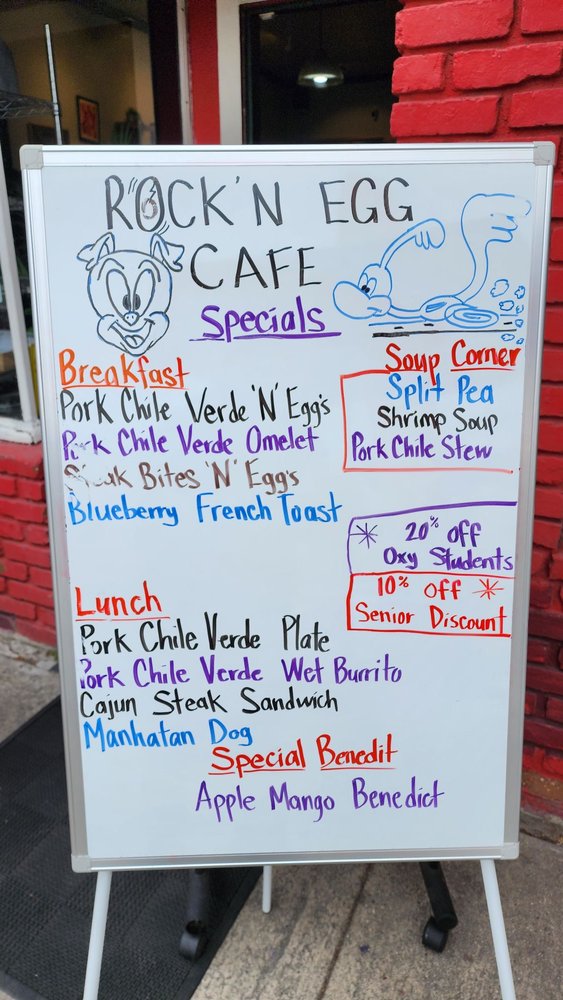 ROCK'N EGG
CAFE
Specials
Breakfast
Pork Chile Verde 'N' Egg's
Pork Chile Verde Omelet
Steak Bites 'N' Egg's
Blueberry French Toast
Soup Corner
Split Pea
Shrimp Soup
Pork Chile Stew
20% off
Oxy Students
10% off
Senior Discount
Lunch
Pork Chile Verde Plate
Pork Chile Verde Wet Burrito
Cajun Steak Sandwich
Manhatan Dog
Special Benedit
Apple Mango Benedict